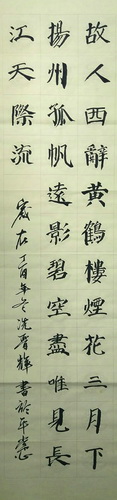 故人西辭黃鶴樓煙花三月下
揚州孤帆遠影碧空盡唯見長
江天際流
歲在丁酉年冬冼有輝書於平常心